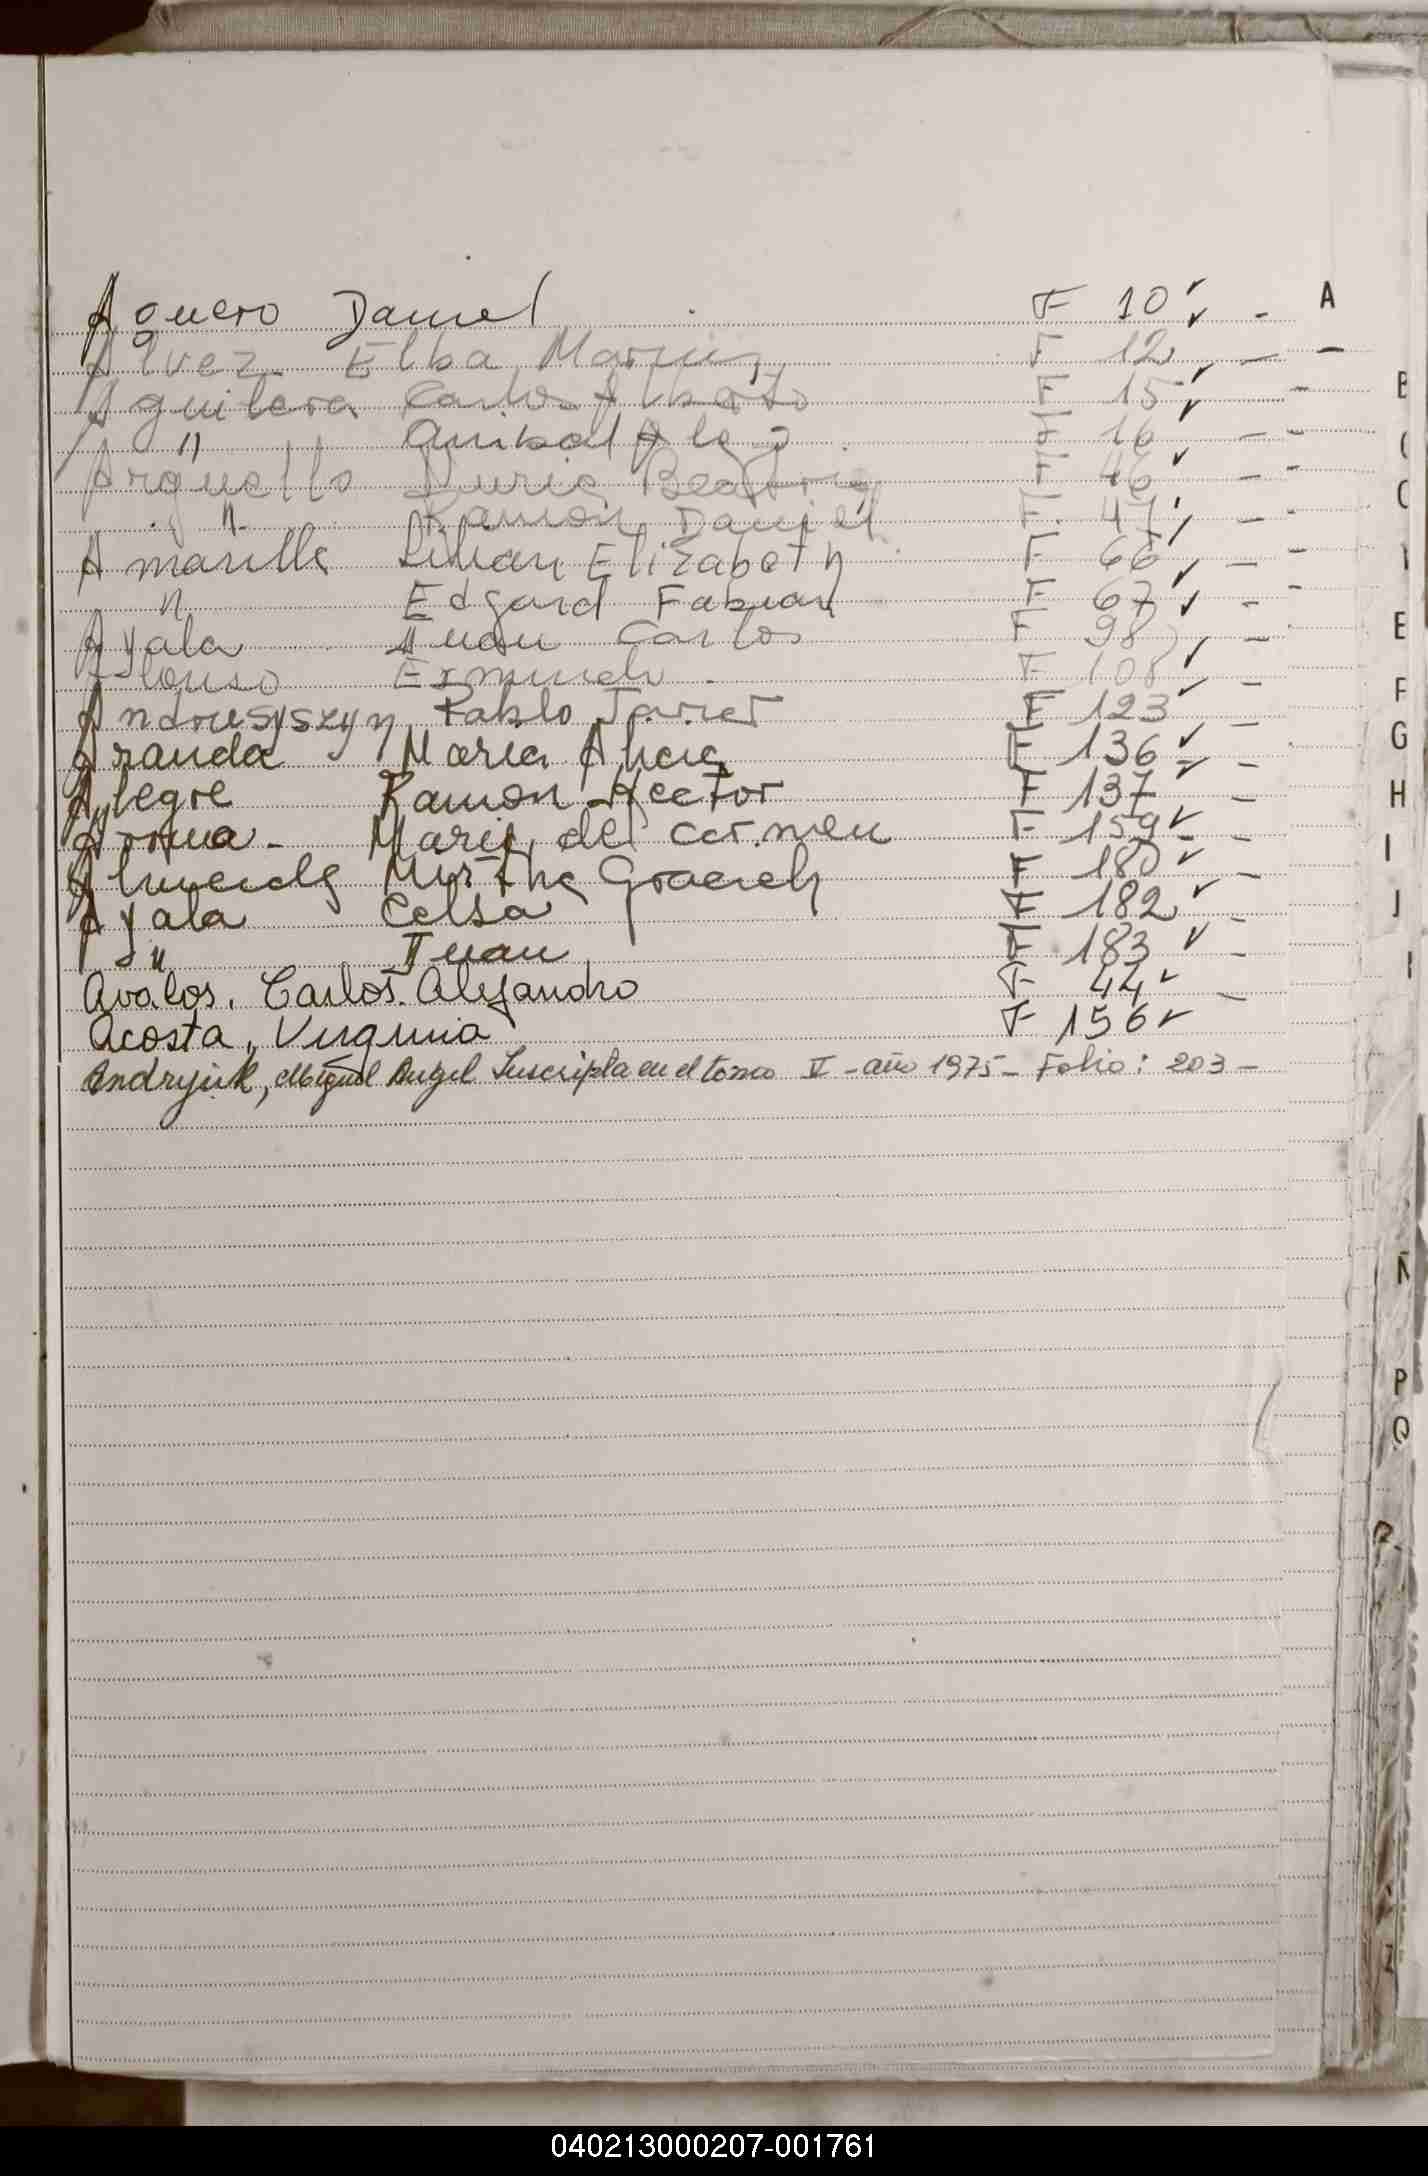 Aguero Daniel F 10 - A
Alvez Elba Maria F 12 - -
Aguilera Carlos Alberto F 15 - B
" Anibal Ale F 16 - -
Arguello Beatriz F 46 - -
" Ramon Daniel F. 47 - - C
Amarilla Lilian Elizabeth F 66 - -
" Edgard Fabian F 67 - -
Ayala Juan Carlos F 98 - E
Alonso F 108 -
Andrusyszyn Pablo Javier F 123 - F
Aranda Maria Alicia F 136 - G
Alegre Ramon Hector F 137 - H
Maria del Carmen F 159 -
Almeida Mirtha Graciela F 180 I
Ayala Celsa F 182 - J
" Juan F 183 -
Avalos, Carlos Alejandro F 44 -
Acosta, Virginia F 156
Andryjuk, Miguel Angel Inscripta en el tomo V - año 1975 - Folio: 203 -
Ñ
P
Q
R
Z
040213000207-001761